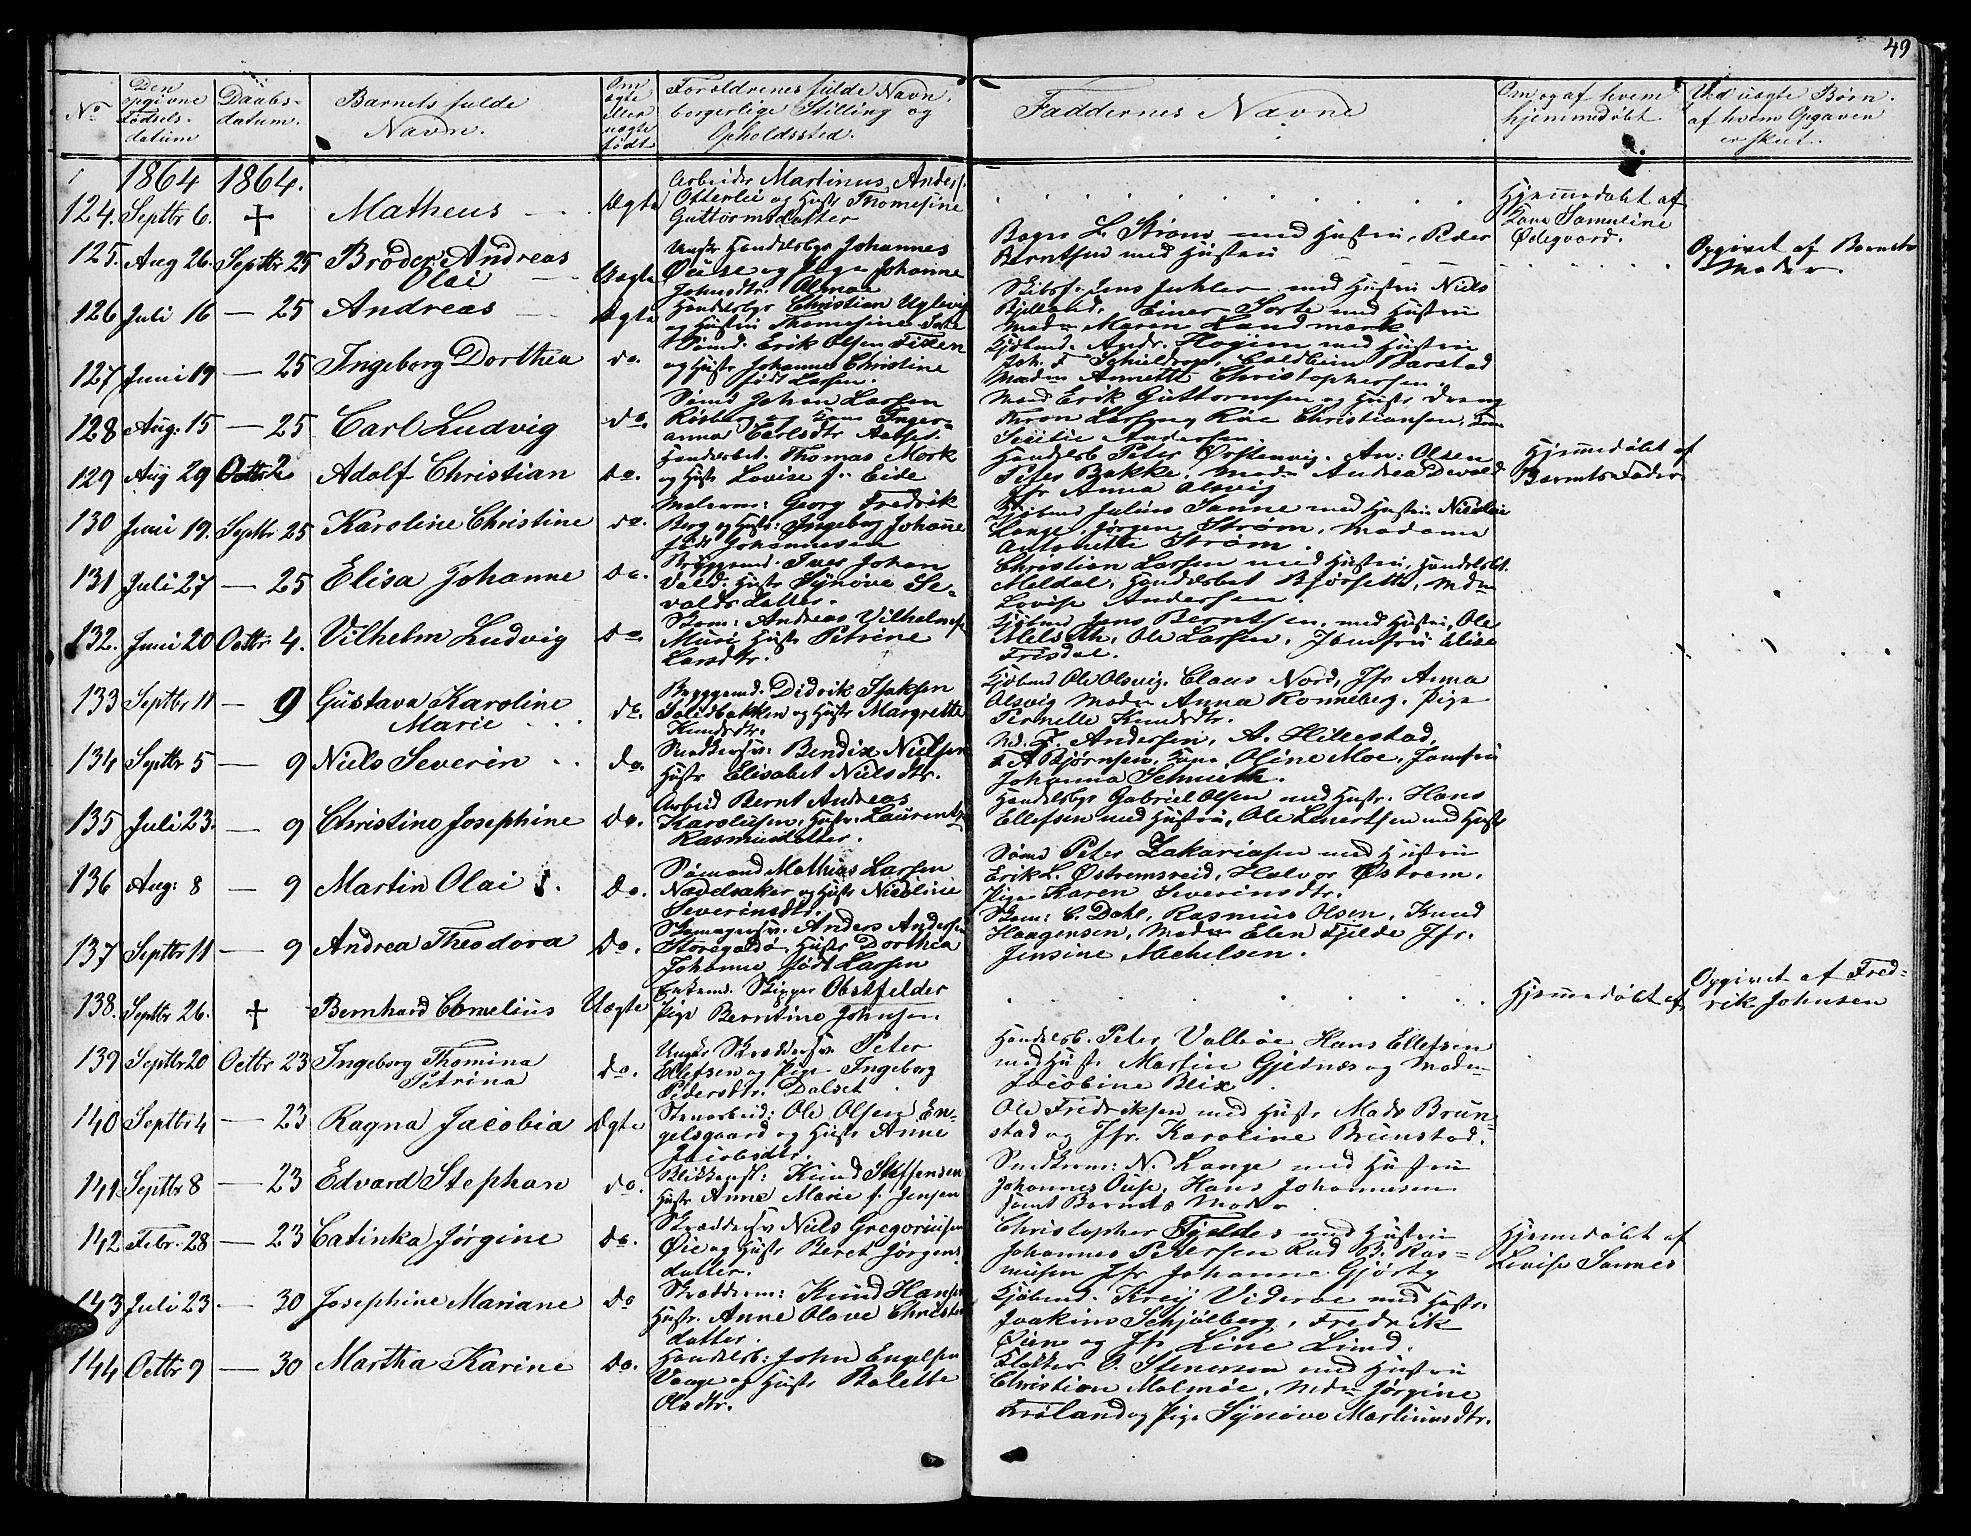 49
No
Den opgivne Fødsels-datum
Daabs-datum.
Barnets fulde Navn.
Om ægte eller uægte født
Forældrenes fulde Navn, borgerlige Stilling og Opholdssted.
Faddernes Navne
Om og af hvem hjemmedøbt.
Ved uægte Børn. af hvem Opgaven er skeet.
1864 1864.
124. Septbr 6. † Matheus Ægte
Arbeider Martinus Anders.
Otterlei og Hustr Thomesine
Guttormsdatter
Hjemmedøbt af
Kone Samueline
Ødegaard.
125. Aug 26. Septbr 25 Broder Andreas
Olai Uægte
Ungk Handelsbgr Johannes
Ouse og Pige Johanne
Johnsdtr.
Bager L. Strøm med Hustru, Peder
Berntsen med Hustru
Opgivet af Barnets
Moder.
126 Juli 16 — 25 Andreas Ægte
Handelsbgr Christian Uglevig
og Hustru Thomesine Sorte
Skibsf. Jens Juhler med Hustru Niels
Einer Sorte med Hustru
Madm Maren Landmark
127 Juni 19 — 25 Ingeborg Dorthea do.
Sømd. Erik Olsen Fixen
og Hustr Johanne Christine
født Larsen.
Kjøbmd. Andr. Hojem med Hustru
Joh. F. Schieldrop, Barstad
Madm Annette Christophersen.
128 Aug: 15 — 25 Carl Ludvig do.
Sømd Johan Larsen
Røsberg og Kone Inger-
anna Carlsdtr Aasset.
Mand Erik Guttormsen og Hustr Dreng
Larsen, Roe Christiansen,
Andersen.
129 Aug 29 Octbr 2 Adolf Christian do.
Handelsbet. Thomas Mork
og Hustr Lovise f. Eide
Handelsb Peter Ørstenvig. An: Olsen
Peter Bakke, Madm Andrea Devold
Jfr Anna Olsvig
Hjemmedøbt af
Barnets Fader
130 Juni 19. Septbr 25 Karoline Christine do.
Malerm: Georg Fredrik
Berg og Hustr: Ingeborg Johanne
født Johannesen
Kjøbmd Julius Sanne med Hustru Nicolai
Lange, Jørgen Strøm, Madame
Antonette Strøm.
131 Juli 27 — 25 Elisa Johanne do.
Bryggemd. Iver Johan
Vold: Hustr Synøve Se-
valdsdatter.
Christian Larsen med Hustru, Handelsbt.
Meldal, Handelsbet Bjørsette, Mdm
Lovise Andersen.
132. Juni 20 Octbr 4. Vilhelm Ludvig do.
Skom: Andreas Vilhelmsen
Muri Hustr Petrine
Larsdtr.
Kjøbmd Jens Berntsen, med Hustru, Ole
Melseth, Ole Larsen, Jomfru Elise
Frisdal.
133 Septbr 11 — 9 Gustava Karoline
Marie do.
Bryggemd. Didrik Isaksen
Solidbakken og Hustr Margrethe
Knudsdtr.
Kjøbmd Ole Olsvig. Claus Nord, Jfr Anna
Olsvig Madm Anna Ronneberg, Pige
Pernelle Knudsdtr.
134 Septbr 5 — 9 Niels Severin do.
Snedkersv: Bendix Nielsen
Hustr Elisabet Nielsdtr.
Md. F. Andersen, A. Hillestad,
A Bjørnsen, Kone Oline Moe, Jomfru
Johanna Schmeth.
135 Juli 23. — 9 Christine Josephine do.
Arbeid Bernt Andreas
Karolusen, Hustr. Laurentze
Rasmusdatter.
Handelsbgr Gabriel Olsen med Hustr. Hans
Ellefsen med Hustru, Ole Lenertsen med Hustr
136 Aug: 8 — 9 Martin Olai do.
Sømand Mathias Larsen
Navelsaker og Hustr Nicoline
Severinsdtr.
Sømd Peter Zakariasen med Hustru
Erik L. Østremsreid, Halvor Østrem,
Pige Karen Severinsdtr.
137 Septbr 11 — 9 Andrea Theodora do.
Skomagersv. Anders Andersen
Storegade, Hustr Dorthea
Johanne født Larsen
Skom: C. Dahl, Rasmus Olsen, Knud
Haagensen, Madm Elen Fjelde Jfr.
Jensine Mechelsen.
138. Septbr 26. † Bernhard Cornelius Uægte
Enkemd. Skipper Obstfelder
Pige Berntine Johnsen
Hjemmedøbt af
Opgivet af Fred-
rik Johnsen
139 Septbr 20 Octbr 23 Ingeborg Thomina
Petrina do.
Ungkr Skræddersv Peter
Ellefsen og Pige Ingeborg
Pedersdtr. Dalset
Handelsb. Peter Valløe Hans Ellefsen
med Hustr Martin Gjednæs og Madm
Jacobine Blix
140 Septbr 4 — 23 Ragna Jacobia Ægte
Stenarbeid: Ole Olsen En-
gelsgaard og Hustr Anne
Jacobsdtr.
Ole Fredriksen med Hustr Mads Brun-
stad og Jfr. Karoline Brunstad.
141 Septbr 8 — 23 Edvard Stephan do.
Blikkensl: Knud Steffensen
Hustr Anne Marie f. Jensen
Snedkerm: N. Lange med Hustru
Johannes Ouse, Hans Johannesen
samt Barnets Moder
142 Febr. 28 — 23 Catinka Jørgine do.
Skræddersv Niels Gregoriusen
Øie og Hustr Beret Jørgens-
datter.
Christopher Fjelde med Hustru
Johannes Pettersen Rud B. Ras-
musen Jfr Johanne Gjørtz
Hjemmedøbt af
Lovise Sannes
143 Juli 23 — 30 Josephine Mariane do
Skrædderm: Knud Hansen
Hustr. Anne Olave Christens
datter.
Kjøbmd. Viderøe med Hustr.
Joakim Schjølberg, Fredrik
Øien og Jfr Line Lund.
144 Octbr 9 — 30 Martha Karine do.
Handelsb: John Engelsen
Vaage og Hustr Bolette
Olsdtr.
Klokker O. Stenersen med Hustru
Christian Malmøe, Mdm Jørgine
Frøland og Pige Synøve Martinusdtr.